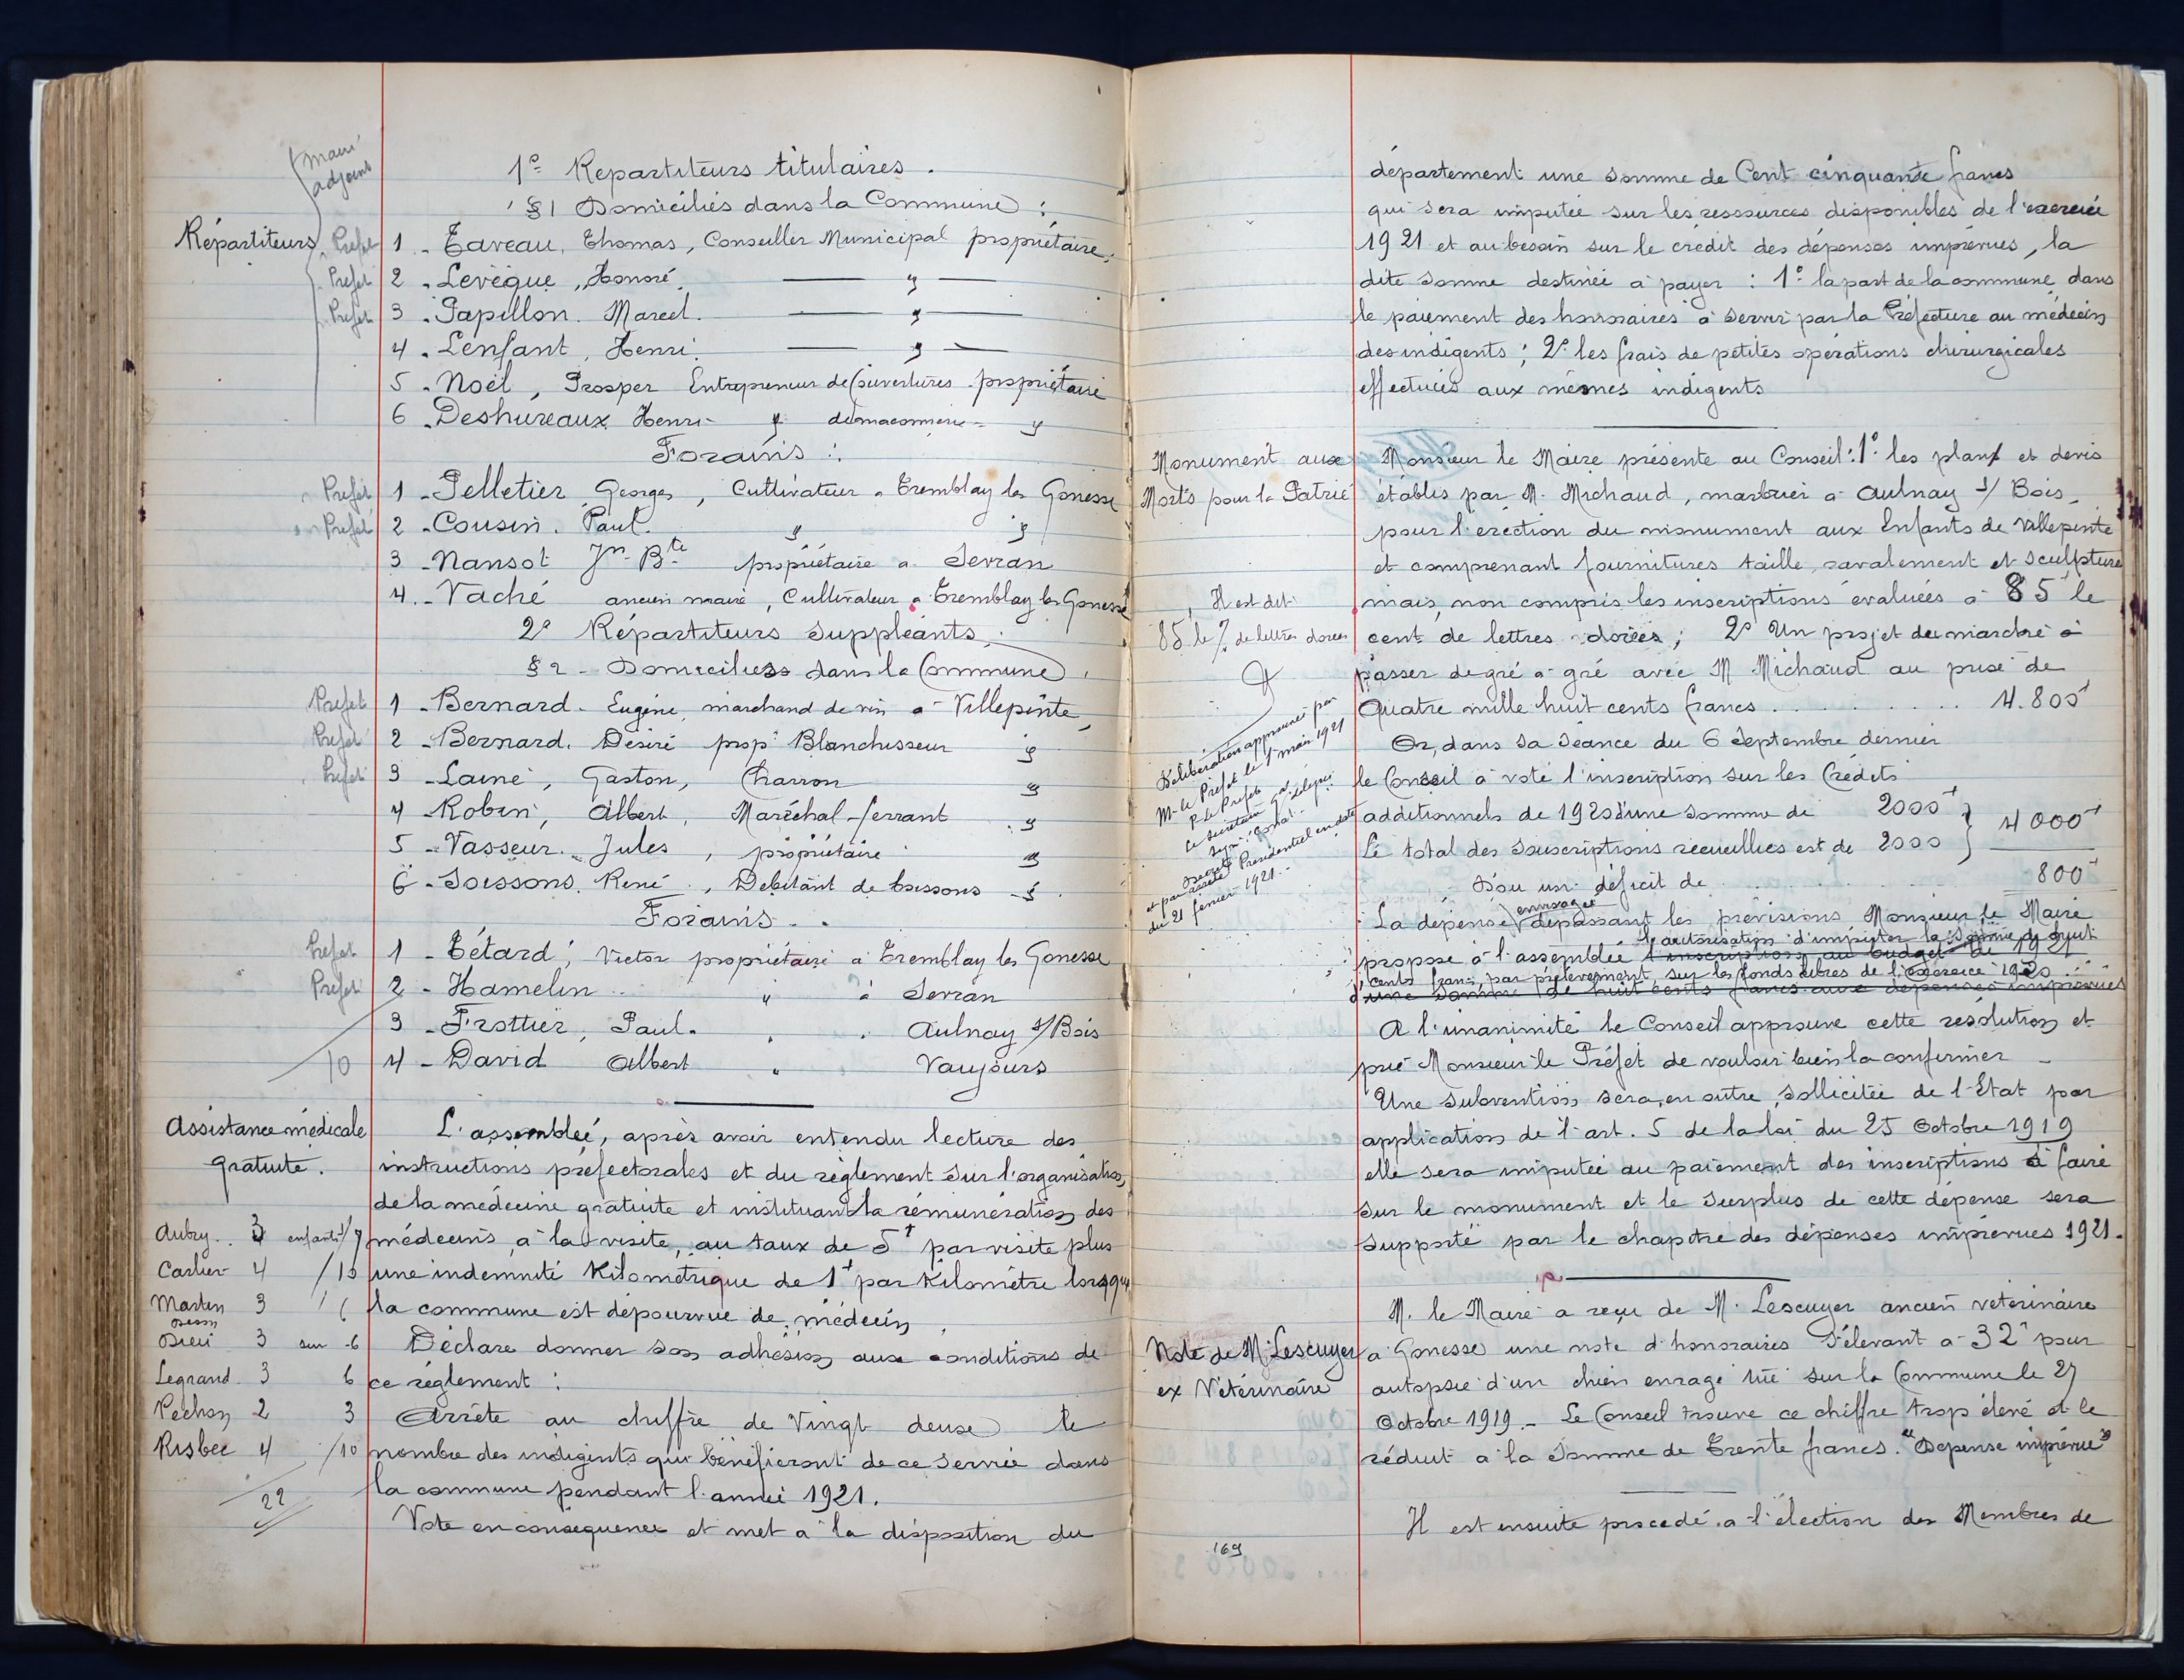 Maire
adjoint
1º Repartiteurs titulaires.
§ 1 Domiciliés dans la Commune :
Répartiteurs
Prefet 1 - Taveau, Thomas, Conseiller Municipal propriétaire.
Prefet 2 - Levêque, Honoré. — " —
Prefet 3 - Papillon. Marcel. — " —
4 - Lenfant, Henri. — " —
5 - Noël, Prosper Entrepreneur de Couvertures propriétaire
6 - Deshureaux Henri " de maçonnerie - "
Forains :
Prefet 1 - Pelletier Georges, Cultivateur à Tremblay les Gonesse
Prefet 2 - Cousin. Paul. " "
3 - Nansot Jn-Bte propriétaire à Sevran
4. - Vaché ancien maire, Cultivateur à Tremblay les Gonesse
2º Répartiteurs Suppléants.
§ 2 - Domiciliés dans la Commune.
Prefet 1 - Bernard. Eugène, marchand de vin à Villepinte
Prefet 2 - Bernard. Désiré prop. Blanchisseur "
Prefet 3 - Lainé, Gaston, Charron "
4 - Robin, Albert, Maréchal-ferrant "
5 - Vasseur. Jules, propriétaire "
6 - Soissons. René, Debitant de boissons - " .
Forains.
Prefet 1 - Tétard, Victor propriétaire à Tremblay les Gonesse
Prefet 2 - Hamelin " à Sevran
3 - Frottier, Paul. " . Aulnay s/Bois
10 4 - David Albert " Vaujours
Assistance médicale
gratuite.
L'assemblée, après avoir entendu lecture des
instructions préfectorales et du règlement sur l'organisation
de la médecine gratuite et instituant la rémunération des
médecins à la visite, au taux de 5f par visite plus
une indemnité Kilométrique de 1f par Kilomètre lorsque
la commune est dépourvue de médecin,
Déclare donner son adhésion aux conditions de
ce règlement :
Arrête au chiffre de Vingt deux le
nombre des indigents qui bénéficieront de ce service dans
la commune pendant l'année 1921.
Vote en conséquence et met à la disposition du
Aubry. 3 enfants / 7
Carlier 4 / 10
Marten 3 / 6
3 sur 6
Legrand 3 6
Pechon 2 3
Risbec 4 / 10
22
département une somme de Cent cinquante francs
qui sera imputée sur les ressources disponibles de l'exercice
1921 et au besoin sur le crédit des dépenses imprévues, la
dite somme destinée à payer : 1º la part de la commune dans
le paiement des honoraires à servir par la Préfecture au médecin
des indigents ; 2º les frais de petites opérations chirurgicales
effectuées aux mêmes indigents
Monument aux
Morts pour la Patrie
Monsieur le Maire présente au Conseil : 1º les plans et devis
établis par M. Michaud, marbrier à Aulnay s/ Bois,
pour l'érection du monument aux Enfants de Villepinte
et comprenant fournitures taille, ravalement et sculpture
mais, non compris les inscriptions évaluées à 85f le
cent de lettres dorées ; 2º Un projet de marché à
passer de gré à gré avec M Michaud au prix de
Quatre mille huit cents francs . . . . . . . . . . 4.800f
Or, dans sa séance du 6 Septembre dernier
le Conseil a voté l'inscription sur les Crédits
additionnels de 1920 d'une somme de 2000f } 4000f
Le total des souscriptions recueillies est de 2000
D'où un déficit de . . . 800f
Il est dit
85 le % de lettres dorées
Délibération approuvée par
M. le Préfet le 1 mars 1921
P. le Prefet
le Secrétaire Gal délégué
et par décret Présidentiel en date
du 21 février 1921.
La dépense envisagée dépassant les prévisions Monsieur le Maire
propose à l'assemblée l'autorisation d'imputer la somme de huit
l'inscription au budget de 1921
cents francs, par prélèvement, sur les fonds libres de l'exercice 1920
d'une somme de huit cents francs aux dépenses imprévues
A l'unanimité le Conseil approuve cette résolution et
prie Monsieur le Préfet de vouloir bien la confirmer -
Une subvention sera, en outre, sollicitée de l'Etat par
application de l'art. 5 de la loi du 25 Octobre 1919
elle sera imputée au paiement des inscriptions à faire
sur le monument et le Surplus de cette dépense sera
supporté par le chapitre des dépenses imprévues 1921.
Note de M. Lescuyer
ex Vétérinaire
M. le Maire a reçu de M. Lescuyer ancien vétérinaire
à Gonesse une note d'honoraires s'élevant à 32f pour
autopsie d'un chien enragé tué sur la Commune le 27
Octobre 1919. - Le Conseil trouve ce chiffre trop élevé et le
réduit à la somme de Trente francs. "Dépense imprévue"
Il est ensuite procédé à l'élection des Membres de
169